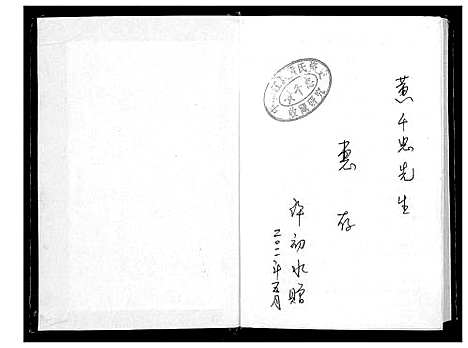 黄千忠先生
惠存
许初水赠
二〇一一年五月